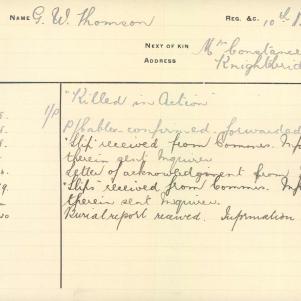 NAME G. W. Thomson REG. &C. 10th
NEXT OF KIN Mrs Constance
ADDRESS Knightsbrid
"Killed in Action"
confirmed. forwarded
"Slip" received from Commrs. Inf
therein sent Inquirer.
Letter of acknowledgment from
9. "Slips" received from Commrs. Inf
therein sent Inquirer.
Burial report received. Information